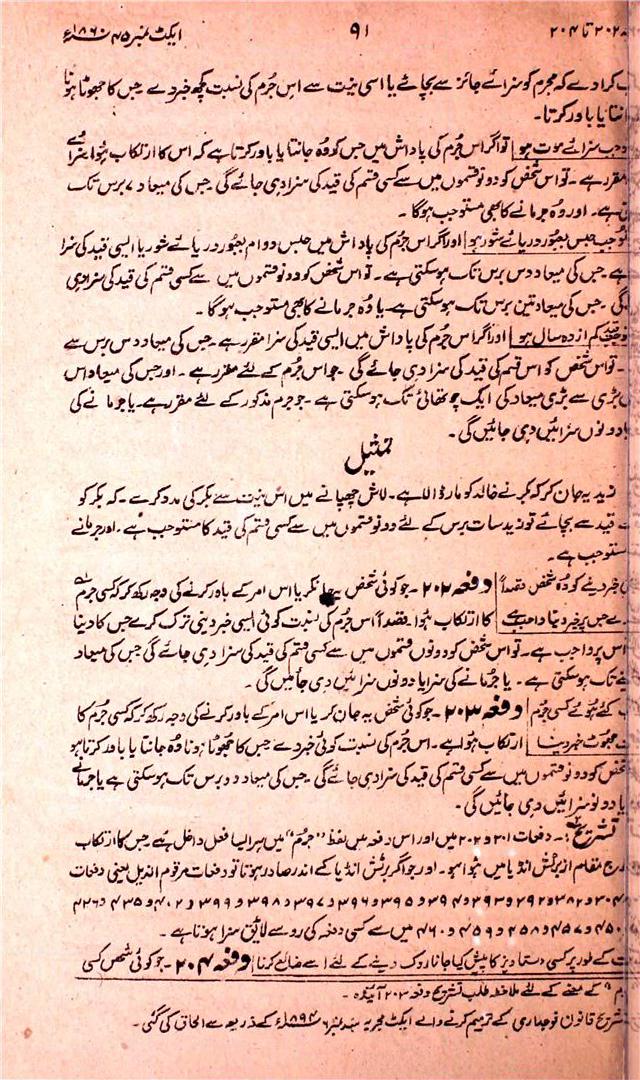 ۲۰۲ تا ۲۰۴ ۹۱ ایکٹ نمبر ۴۵ ۱۸۶۰ء
کرا دے کہ مجرم کو سزائے جائز سے بچائے یا اسی نیت سے اس جرم کی نسبت کچھ خبر دے جس کا جھوٹا ہونا
جانتا یا باور کرتا۔
سزائے موت ہو تو اگر اس جرم کی پاداش میں جس کو وہ جانتا یا باور کرتا ہے کہ اس کا ارتکاب ہوا سزائے
مقرر ہے۔ تو اس شخص کو دونو قسموں میں سے کسی قسم کی قید کی سزا دی جائے گی جس کی میعاد ۷ برس تک
ہے۔ اور وہ جرمانے کا بھی مستوجب ہوگا۔
حبس بعبور دریائے شور ہو اور اگر اس جرم کی پاداش میں حبس دوام بعبور دریائے شور یا ایسی قید کی سزا
ہے جس کی میعاد دس برس تک ہو سکتی ہے۔ تو اس شخص کو دونو قسموں میں سے کسی قسم کی قید کی سزا دی
گی۔ جس کی میعاد تین برس تک ہو سکتی ہے۔ یا وہ جرمانے کا بھی مستوجب ہوگا۔
کم از دہ سال ہو اور اگر اس جرم کی پاداش میں ایسی قید کی سزا مقرر ہے۔ جس کی میعاد دس برس سے
۔ تو اس شخص کو اس قسم کی قید کی سزا دی جائے گی جو اس جرم کے لئے مقرر ہے۔ اور جس کی میعاد اس
بڑی سے بڑی میعاد کی ایک چوتھائی تک ہو سکتی ہے۔ جو جرم مذکور کے لئے مقرر ہے۔ یا جرمانے کی
یا دونوں سزائیں دی جائیں گی۔
تمثیل
زید یہ جان کر کہ بکر نے خالد کو مار ڈالا ہے۔ لاش چھپانے میں اس نیت سے بکر کی مدد کرے۔ کہ بکر کو
قید سے بچائے تو زید سات برس کے لئے دونو قسموں میں سے کسی قسم کی قید کا مستوجب ہے۔ اور جرمانے
مستوجب ہے۔
خبر دینے کو وہ شخص قصداً دفعہ ۲۰۲۔ جو کوئی شخص یہ جانکر یا اس امر کے باور کرنے کی وجہ رکھ کر کہ کسی جرم
جس پر خبر دینا واجب ہے کا ارتکاب ہوا قصداً اس جرم کی نسبت کوئی ایسی خبر دینی ترک کرے جس کا دینا
اس پر واجب ہے۔ تو اس شخص کو دونوں قسموں میں سے کسی قسم کی قید کی سزا دی جائے گی جس کی میعاد
تک ہو سکتی ہے۔ یا جرمانے کی سزا یا دونوں سزائیں دی جائیں گی۔
کئے ہوئے کسی جرم دفعہ ۲۰۳۔ جو کوئی شخص یہ جان کر یا اس امر کے باور کرنے کی وجہ رکھ کر کہ کسی جرم کا
جھوٹ خبر دینا ارتکاب ہوا ہے۔ اس جرم کی نسبت کوئی خبر دے جس کا جھوٹا ہونا وہ جانتا یا باور کرتا ہو
شخص کو دونو قسموں میں سے کسی قسم کی قید کی سزا دی جائے گی۔ جس کی میعاد دو برس تک ہو سکتی ہے یا جرمانے
یا دونو سزائیں دی جائیں گی۔
تشریح:۔ دفعات ۲۰۱ و ۲۰۲ میں اور اس دفعہ میں لفظ "جرم" میں ہر ایسا فعل داخل ہے جس کا ارتکاب
مقام از برٹش انڈیا میں ہوا ہو۔ اور جو اگر برٹش انڈیا کے اندر صادر ہوتا تو دفعات مرقوم الذیل یعنی دفعات
۳۰۴ و ۳۸۲ و ۳۹۲ و ۳۹۳ و ۳۹۴ و ۳۹۵ و ۳۹۶ و ۳۹۷ و ۳۹۸ و ۳۹۹ و ۴۰۲ و ۴۳۵ و ۴۳۶
۴۵۰ و ۴۵۷ و ۴۵۸ و ۴۵۹ و ۴۶۰ میں سے کسی دفعہ کی رو سے لائق سزا ہوتا ہے۔
کے طور پر کسی دستاویز کا پیش کیا جانا روک دینے کے لئے اسے ضائع کرنا دفعہ ۲۰۴۔ جو کوئی شخص کسی
کے معنے کے لئے ملاحظہ طلب تشریح دفعہ ۲۰۳ آئندہ۔
تشریح قانون فوجداری کے ترمیم کرنے والے ایکٹ مجریہ نمبر ۱۸۹۴ء کے ذریعہ سے الحاق کی گئی۔